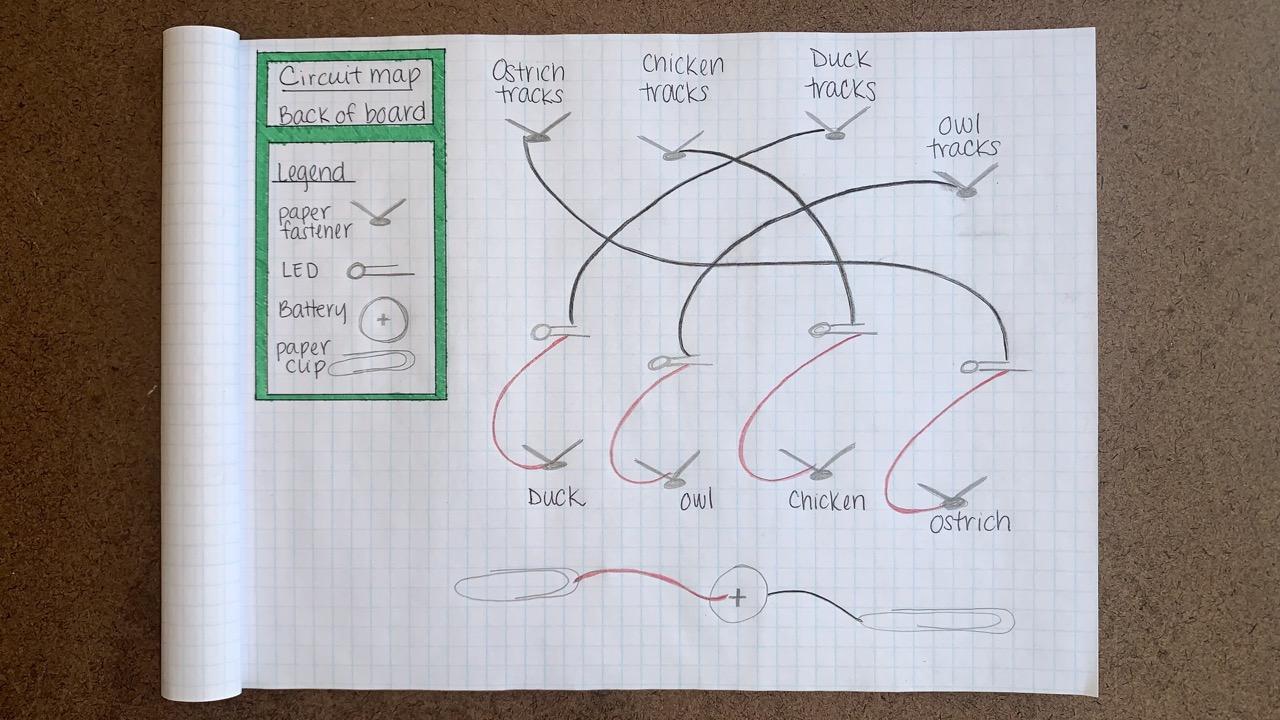 Circuit map
Back of board
Legend
paper
fastener
LED
Battery
+
paper
clip
Ostrich
tracks
Chicken
tracks
Duck
tracks
owl
tracks
Duck
owl
Chicken
Ostrich
+